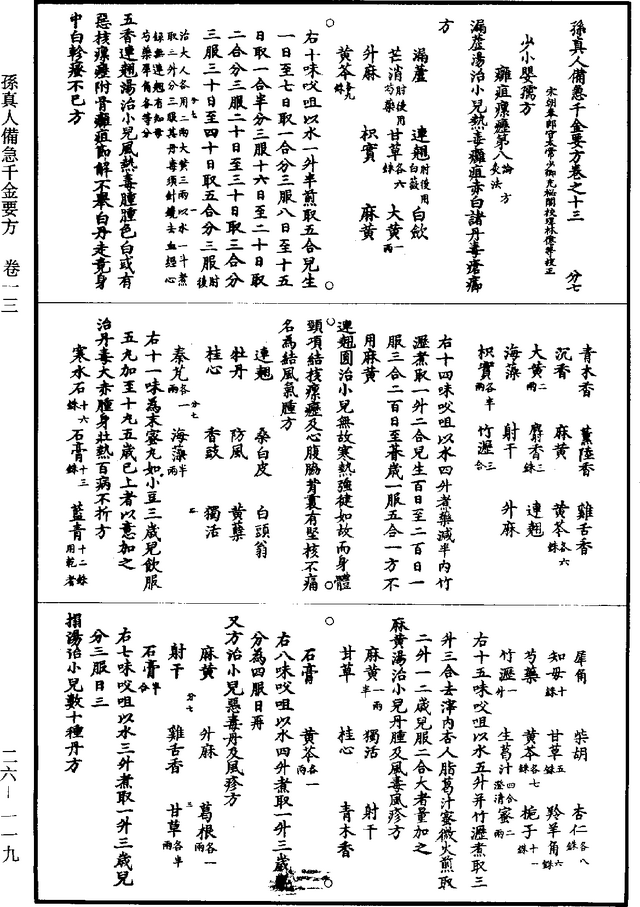 孫真人備急千金要方卷之十三　分七
宋朝奉郎守太常少卿充秘閣校理林億等校正
少小嬰孺方
癰疽瘰癧第八 論 灸法 方
漏蘆湯治小兒熱毒癰疽赤白諸丹毒瘡癤
方
漏蘆　連翹 肘後用白薇　白歛
芒消 肘後用芍藥　甘草 各六銖　大黃 一兩
外麻　枳實　麻黃
黃芩 各九銖
右十味㕮咀以水一升半煎取五合兒生
一日至七日取一合分三服八日至十五
日取一合半分三服十六日至二十日取
二合分三服二十日至三十日取三合分
三服三十日至四十日取五合分三服
五香連翹湯治小兒風熱毒腫腫色白或有
惡核瘰癧附骨癰疽節解不舉白丹走竟身
中白軫瘙不已方
青木香　薰陸香　雞舌香
沉香　麻黃　黃芩 各六銖
大黃 二兩　麝香 三銖　連翹
海藻　射干　外麻
枳實 各半兩　竹瀝 三合
右十四味㕮咀以水四升煮藥減半內竹
瀝煮取一升二合兒生百日至二百日一
服三合二百日至朞歲一服五合一方不
用麻黃
連翹圓治小兒無故寒熱強健如故而身體
頸項結核瘰癧及心腹脇背裏有堅核不痛
名為結風氣腫方
連翹　桑白皮　白頭翁
牡丹　防風　黃蘗
桂心　香豉　獨活
秦艽 各一兩　海藻 半兩
右十一味為末蜜丸如小豆三歲兒飲服
五丸加至十丸五歲已上者以意加之
治丹毒大赤腫身壯熱百病不折方
寒水石 十六銖　石膏 十三銖　藍青 十二銖 用乾者
犀角　柴胡　杏仁 各八銖
知母 十銖　甘草 五銖　羚羊角 六銖
芍藥　黃芩 各七銖　梔子 十一銖
竹瀝 一升　生葛汁 四合澄清　蜜 二兩
右十五味㕮咀以水五升并竹瀝煮取三
升三合去滓內杏人脂葛汁蜜微火煎取
二升一二歲兒服二合大者量加之
麻黃湯治小兒丹腫及風毒風疹方
麻黃 一兩半　獨活　射干
甘草　桂心　青木香
石膏　黃芩 各一兩
右八味㕮咀以水四升煮取一升三歲兒
分為四服日再
又方治小兒惡毒丹及風疹方
麻黃　外麻　葛根 各一兩
射干　雞舌香　甘草 各半兩
石膏 半合
右七味㕮咀以水三升煮取一升三歲兒
分三服日三
搨湯治小兒數十種丹方
孫真人備急千金要方　卷一三
二六—一一九